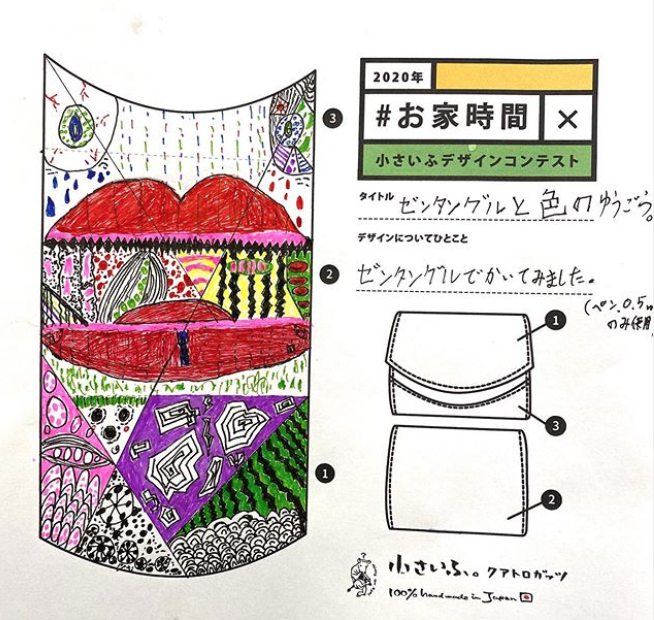 2020年
#お家時間 ×
小さいふデザインコンテスト
タイトル ゼンタングルと色のゆうごう。
デザインについてひとこと
ゼンタングルでかいてみました。
(ペン、0.5
のみ使用
3
2
1
1
3
2
小さいふ。クアトロガッツ
100% handmade in Japan